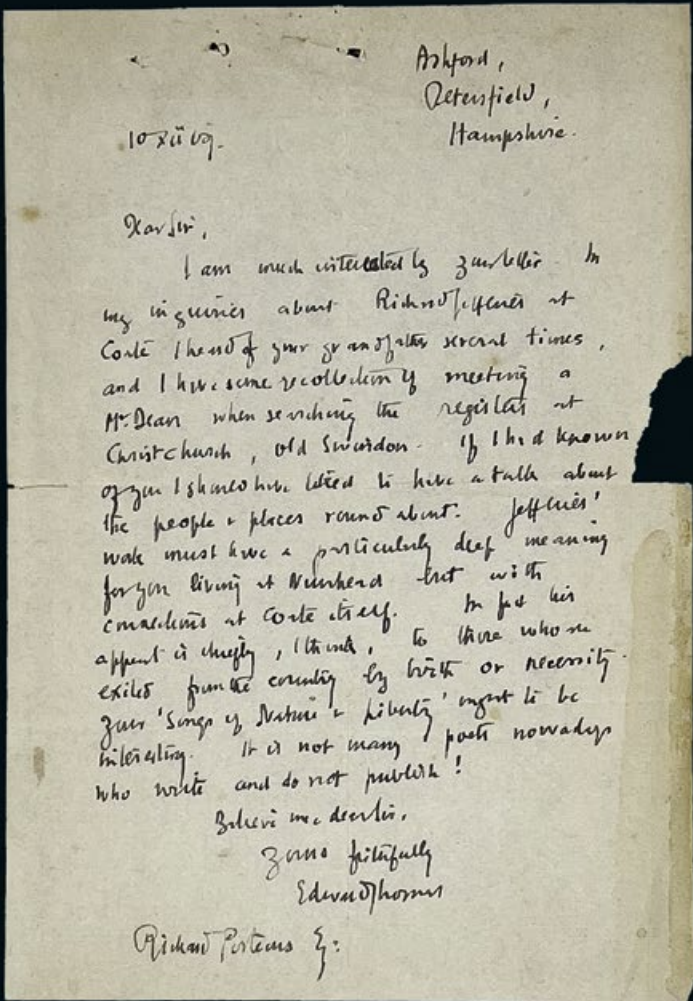 Ashford,
Petersfield,
Hampshire.
10 xii 09.
Dear Sir,
I am much interested by your letter. In
my inquiries about Richard Jefferies at
Coate I heard of your grandfather several times,
and I have some recollection of meeting a
Mr. Dean when searching the registers at
Christchurch, old Swindon. If I had known
of you I should have liked to have a talk about
the people & places round about. Jefferies'
work must have a particularly deep meaning
for you living at Nunhead but with
connections at Coate itself. In fact his
appeal is chiefly, I think, to those who are
exiled from the country by birth or necessity.
Your 'Songs of Nature & Liberty' ought to be
interesting. It is not many poets nowadays
who write and do not publish!
Believe me dear Sir,
Yours faithfully
Edward Thomas
Richard Porteus Esq: